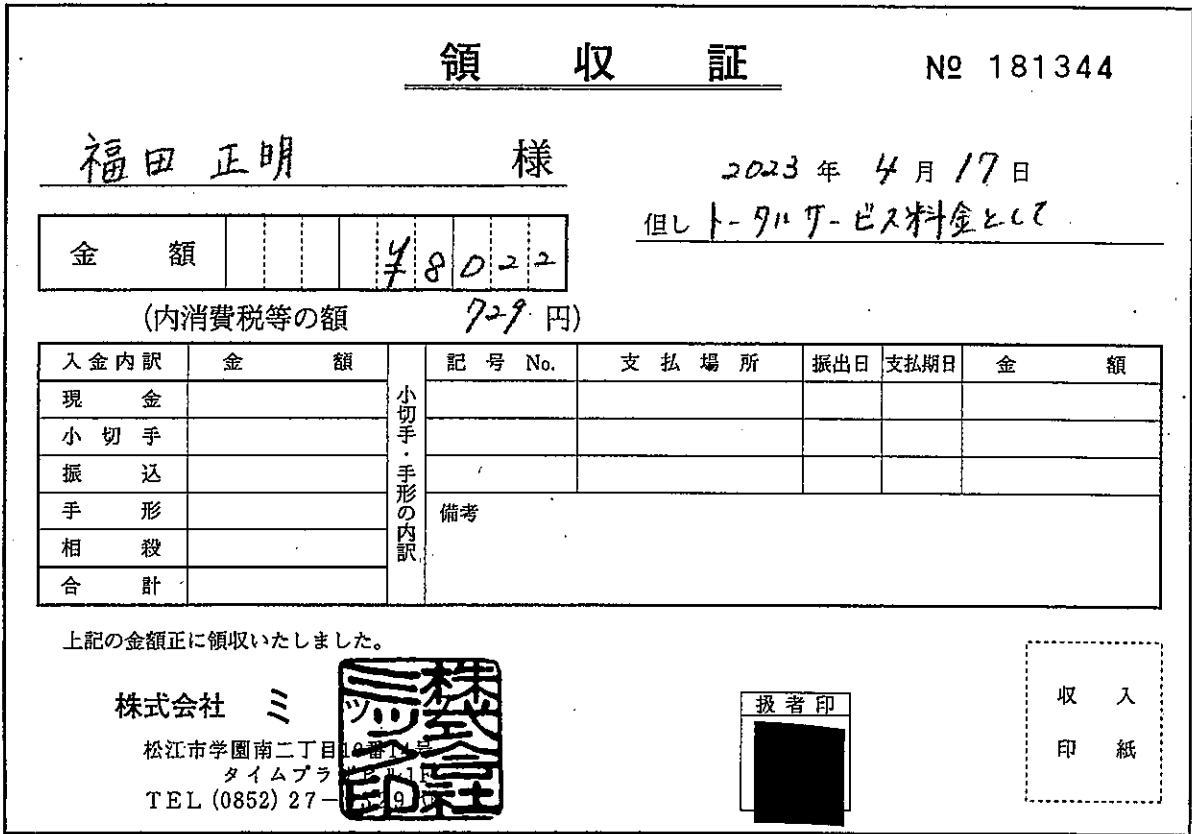 領収証
№ 181344
福田 正明 様
2023 年 4 月 17 日
但し トータルサービス料金として
金額 ¥8022
(内消費税等の額 729 円)
入金内訳 金額
現金
小切手
振込
手形
相殺
合計
小切手・手形の内訳
記号 No. 支払場所 振出日 支払期日 金額
備考
上記の金額正に領収いたしました。
株式会社 ミ
松江市学園南二丁目
タイムプラ
TEL (0852) 27-
扱者印
収入
印紙